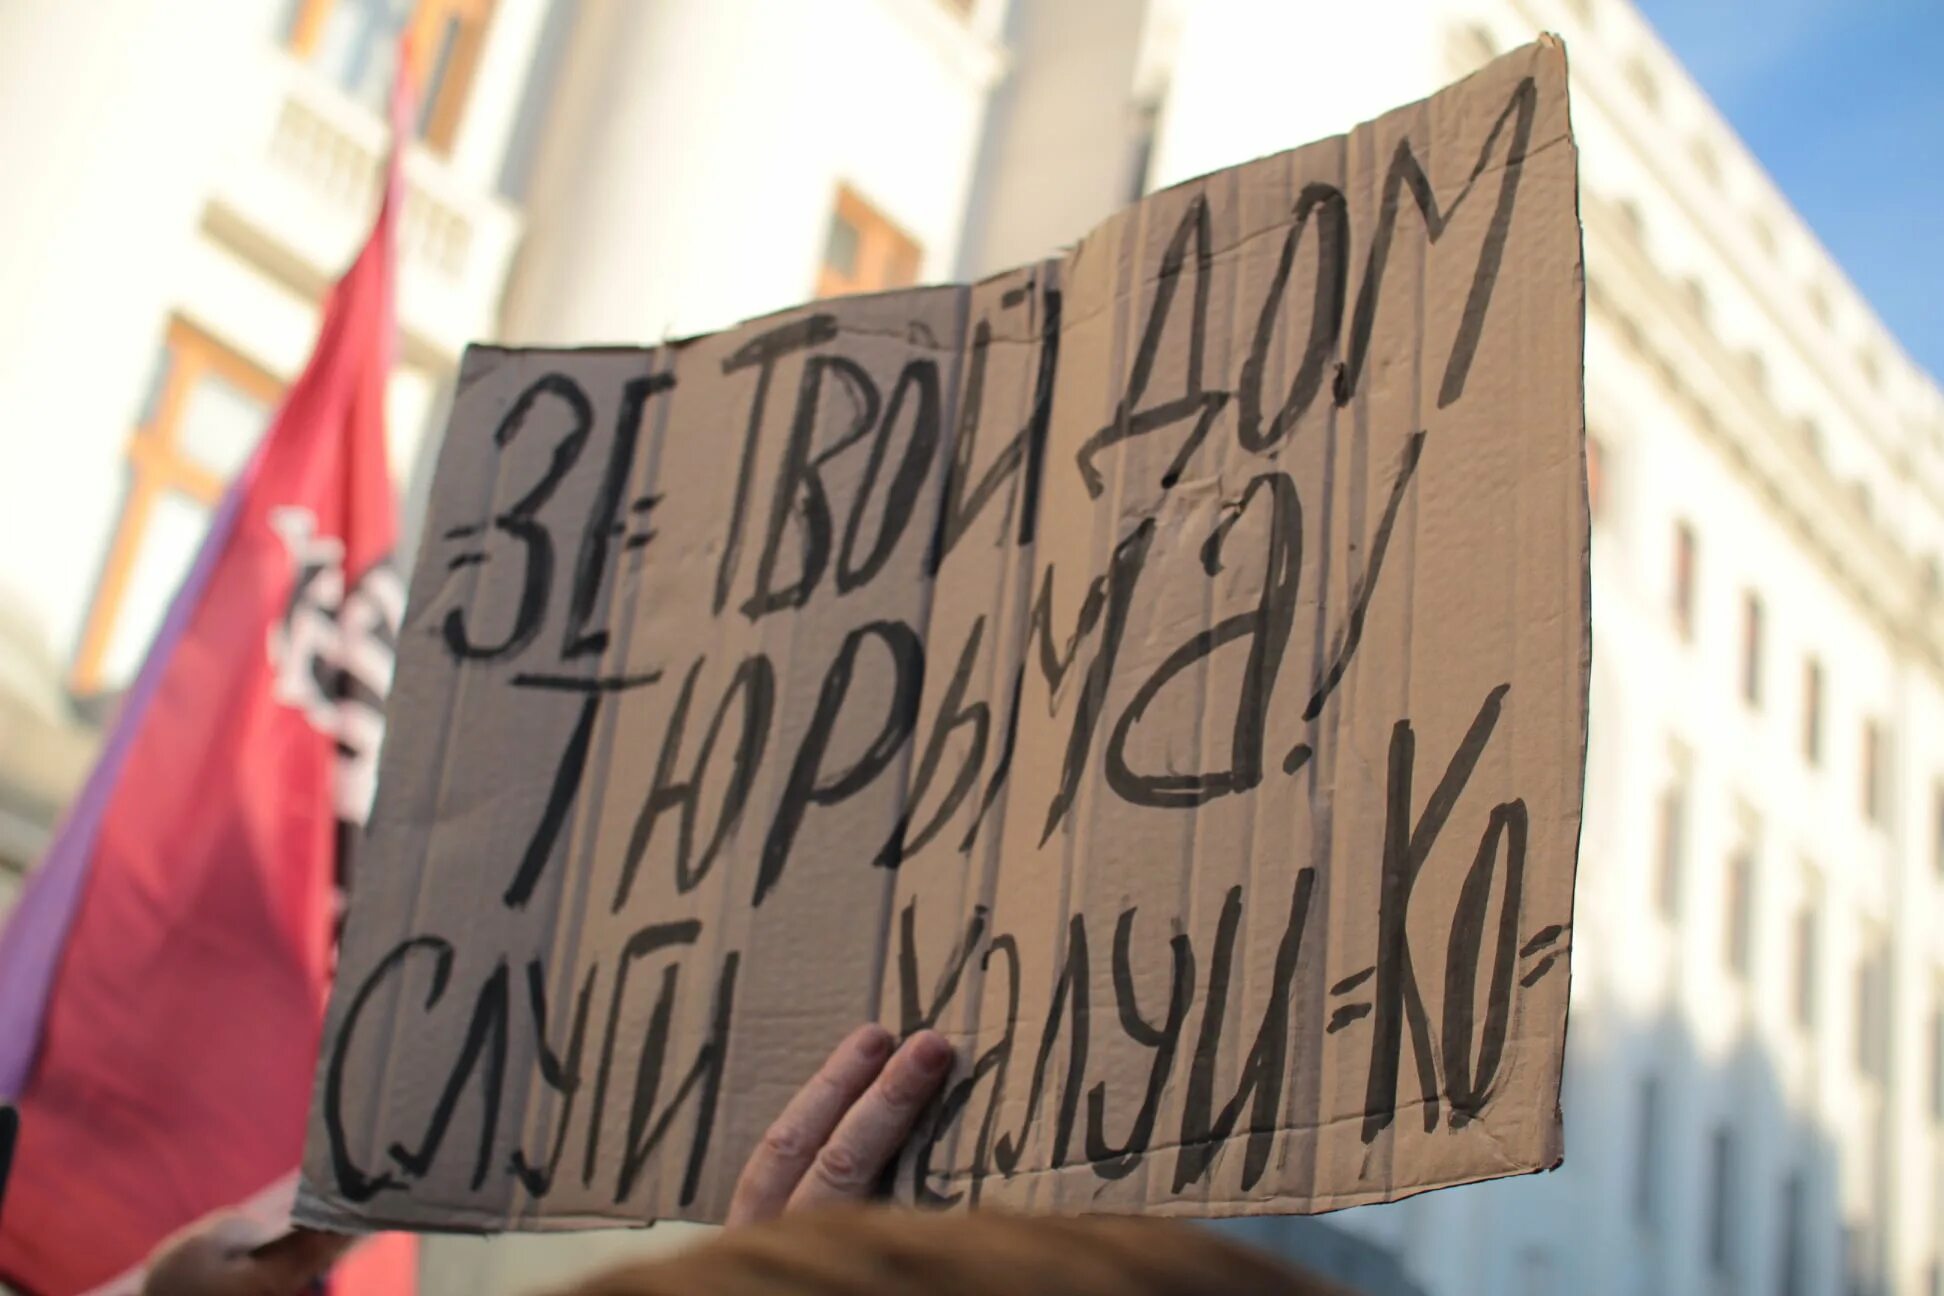 =ЗЕ= ТВОЙ ДОМ
ТЮРЬМА!
СЛУГИ ХАЛУИ =КО=